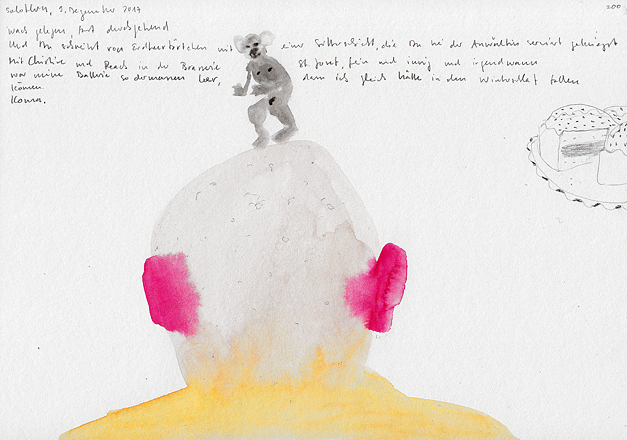 Solothurn, 9. Dezember 2017 200
wach gelegen, fast durchgehend
Und Du schreibst vom Erdbeertörtchen mit einer Silberschicht, die Du bei der Anwältin serviert gekriegt
Mit Christine und Beads in der Brasserie St. Josef, fein und innig und irgendwann
war meine Batterie so dermassen leer, dass ich gleich hätte in den Winterschlaf fallen
können.
Koma.